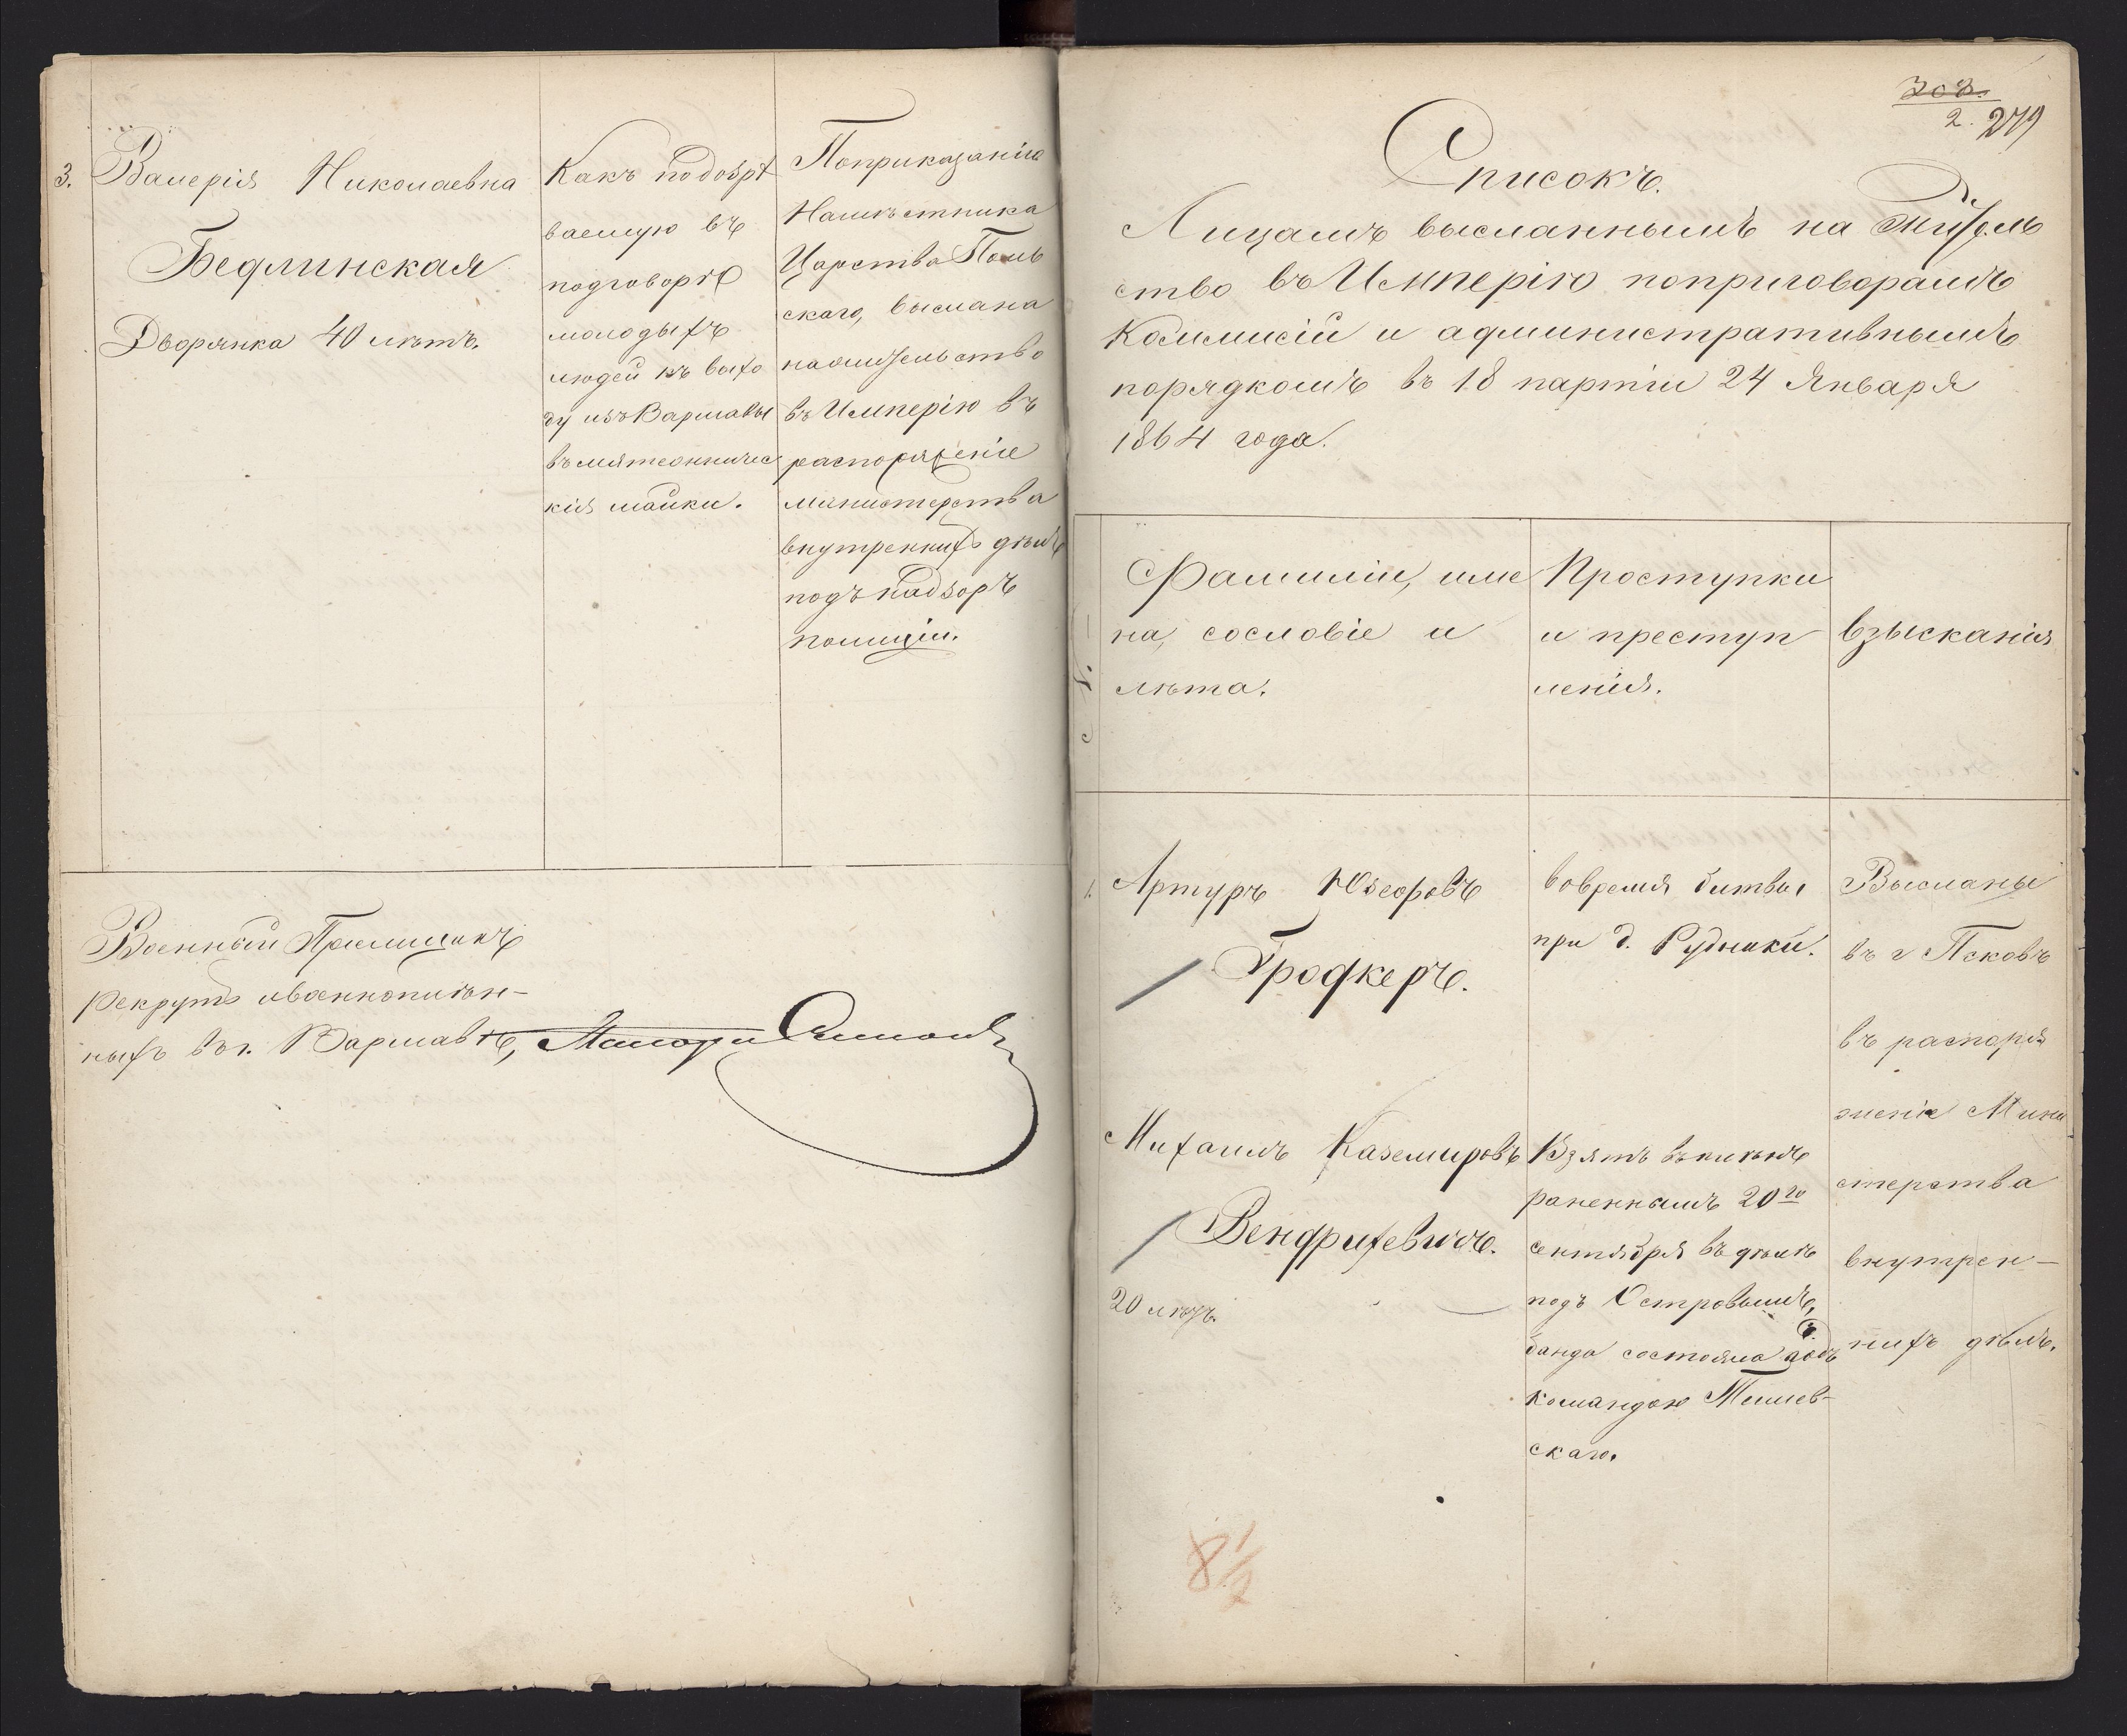 3. Валерія Николаевна
Бедлинская
Дворянка 40 лѣтъ.
Какъ подозрѣ
ваемую въ
подговорѣ
молодыхъ
людей къ выхо
ду изъ Варшавы
въ мятежничес
кія шайки.
По приказанію
Намѣстника
Царства Поль
скаго, выслана
на жительство
въ Имперію въ
распоряженіе
министерства
внутреннихъ дѣлъ
подъ надзоръ
полиціи.
Военный Пріемщикъ
рекрутъ и военноплѣн-
ныхъ въ г. Варшавѣ,
308.
2. 279
Списокъ.
Лицамъ высланнымъ на жытель
ство въ Имперію по приговорамъ
Коммисій и административнымъ
порядкомъ въ 18 партіи 24 Января
1864 года.
Фамиліи, име
на, сословіе и
лѣта.
Проступки
и преступ
ленія.
взысканія
1. Артуръ Юзефовъ
Гродкеръ.
вовремя битвы
при д. Рудники.
Высланы
въ г Псковъ
въ распоря
женіе Мини
стерства
внутрен-
нихъ дѣлъ.
Михаилъ Каземировъ
Вендрихевичъ.
20 лѣтъ.
Взятъ въ плѣнъ
раненнымъ 20го
сентября въ дѣлѣ
подъ Островымъ,
банда состояла подъ
командою
скаго.
8 1/2